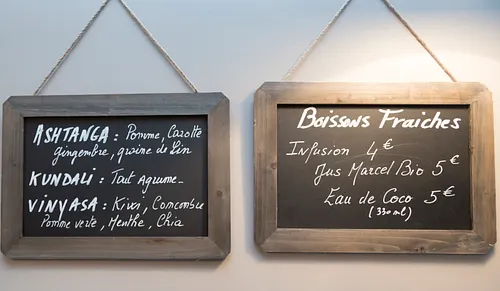 ASHTANGA : Pomme, Carotte
gingembre, graine de Lin
KUNDALI : Tout Agrume...
VINYASA : Kiwi, Concombre
Pomme verte, Menthe, Chia
Boissons Fraiches
Infusion 4€
Jus Marcel Bio 5€
Eau de Coco 5€
(330ml)